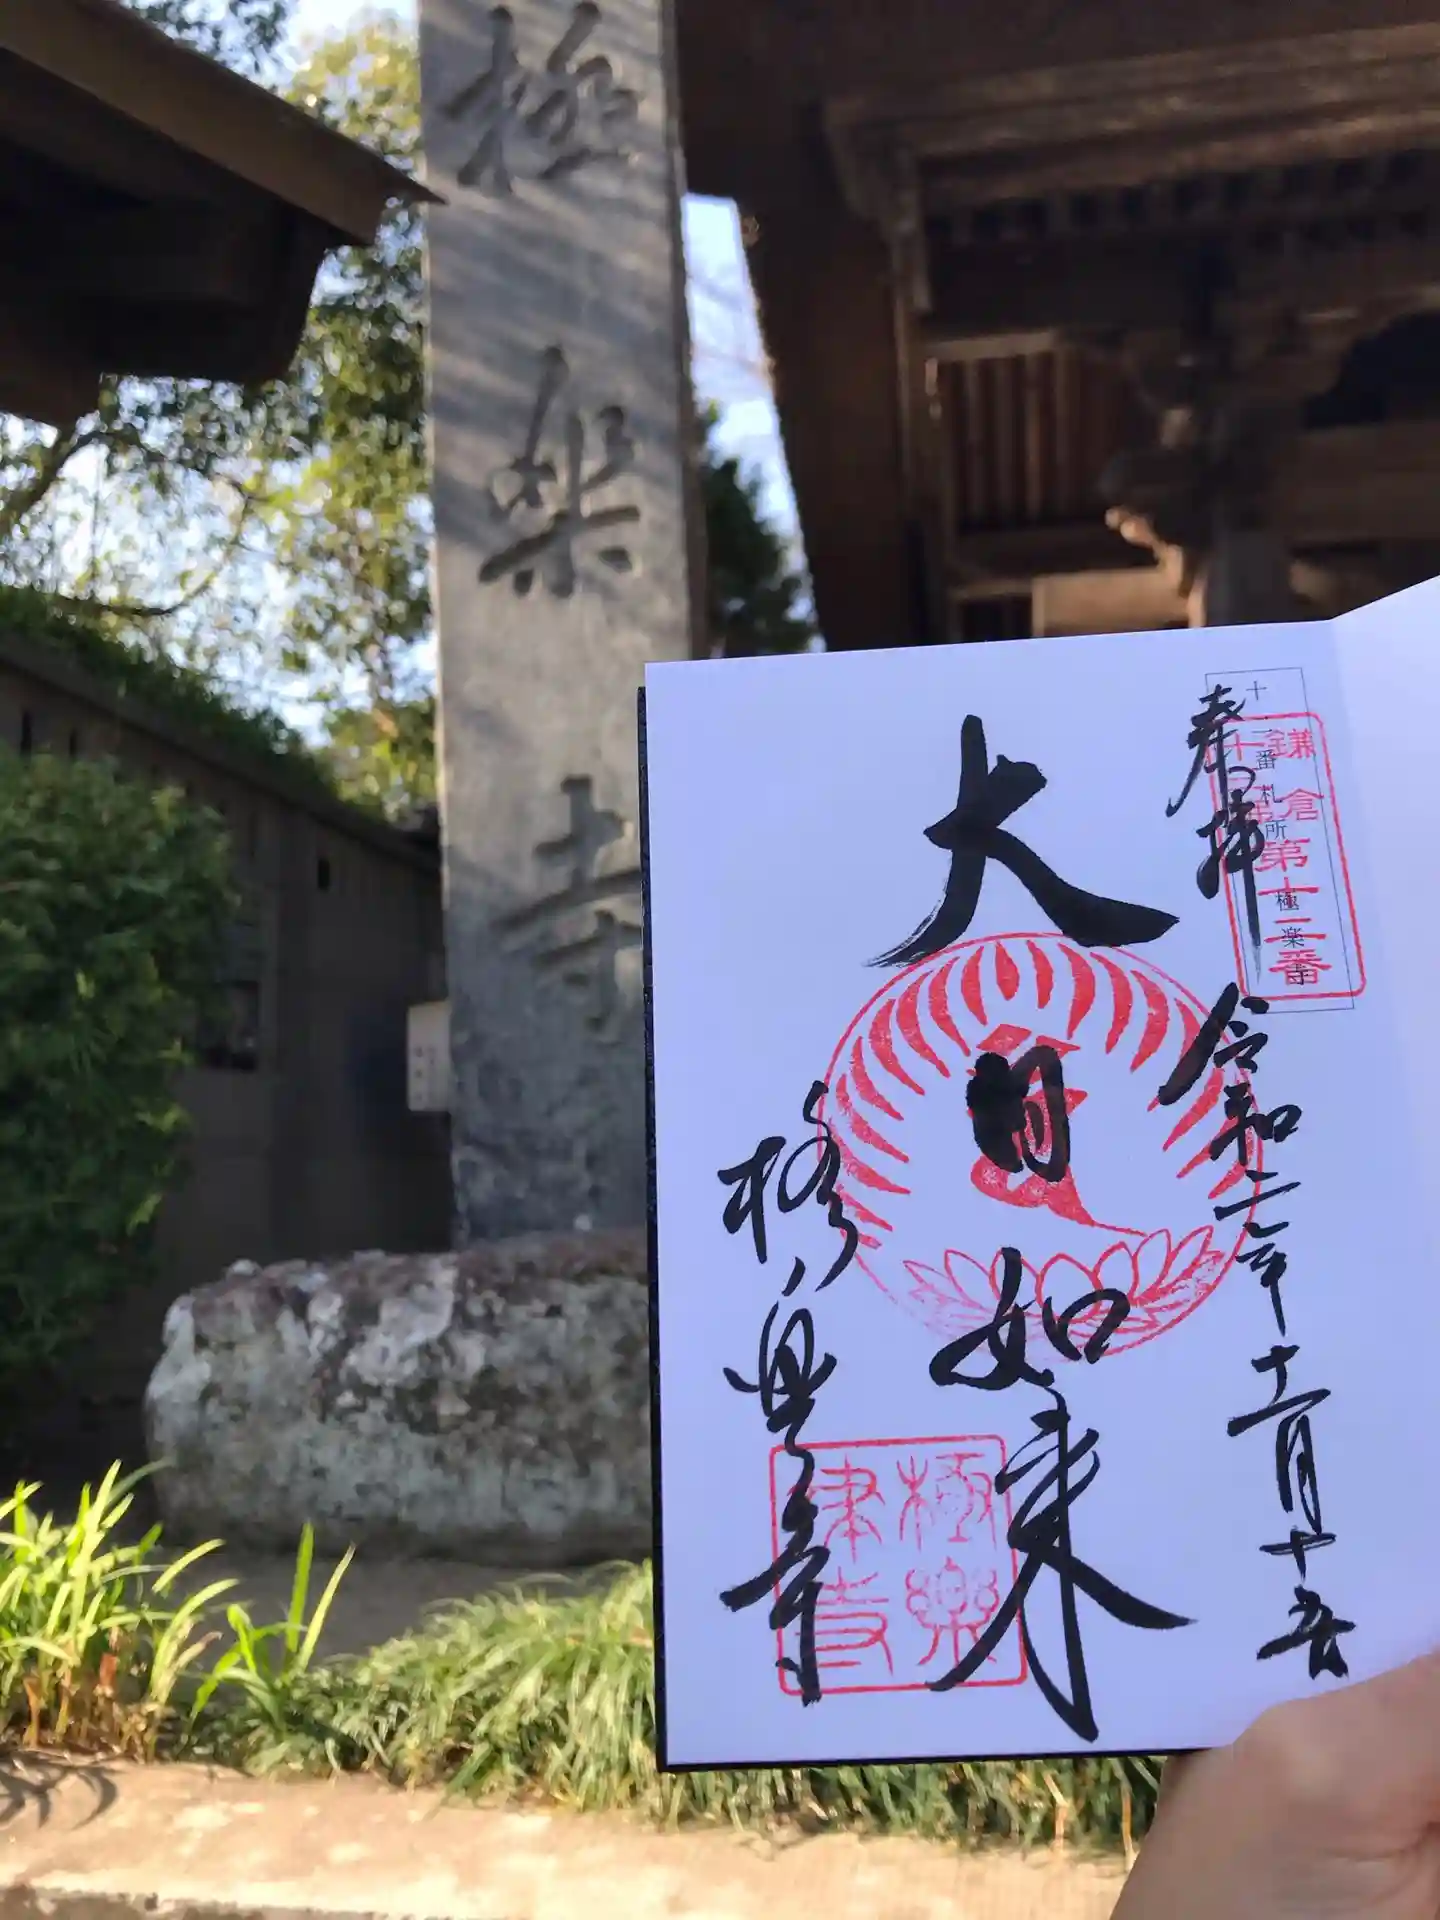 極楽寺
奉拝
十二番札所 極楽寺
鎌倉第十二番
令和二年十一月十五
大日如来
極楽寺
極樂
律寺